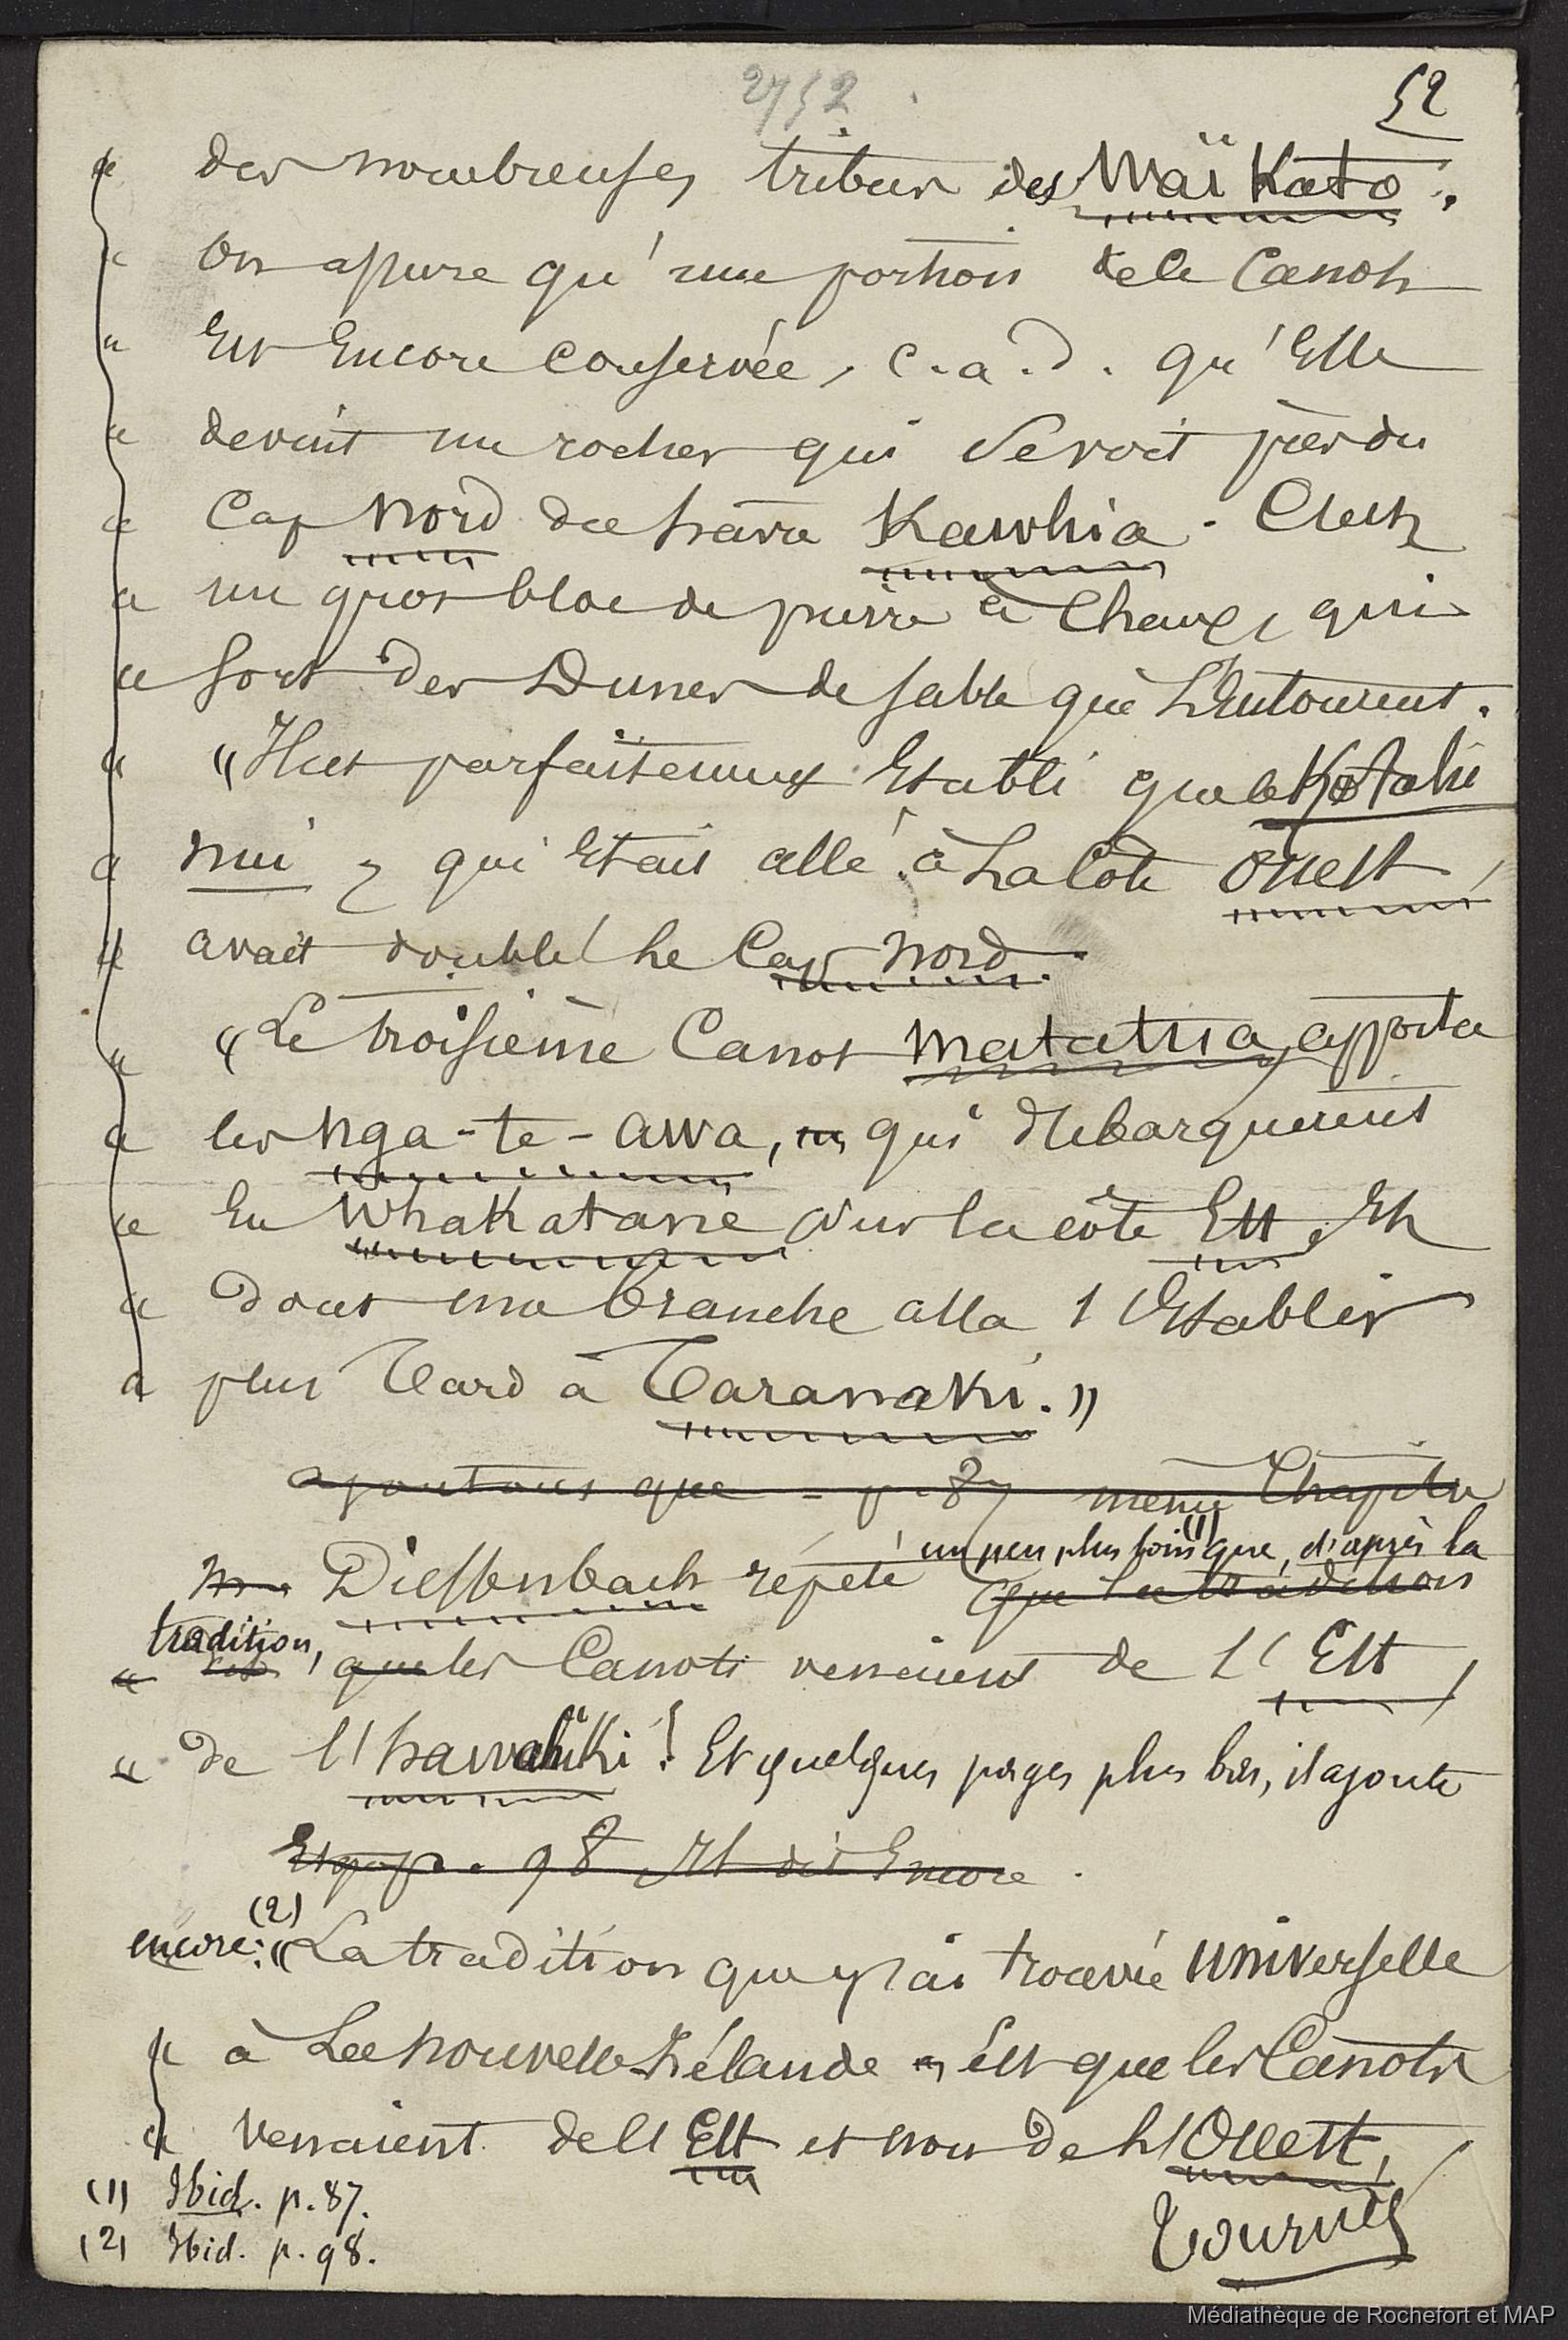 2752
52
« des nombreuses tribus des Waï Kato.
« On assure qu'une portion de ce Canot
« Est Encore Conservée, c.a.d. qu'Elle
« devint un rocher qui se voit près du
« Cap Nord du havre Kawhia. C'est
« un gros bloc de pierre à Chaux, qui
« sort des Dunes de sable qui L'Entourent.
« "Il est parfaitement Etabli que le Kotahi
« nui, qui Etait allé à La Côte Ouest,
« avait doublé Le Cap Nord.
« "Le troisième Canot Matatua, apporta
« les Nga-te-awa, qui débarquèrent
« En Whakatane sur la côte Est, Et
« dont une branche alla s'Etablir
« plus Tard à Taranaki."
ajoutons que = p. 87 même Chapitre
un peu plus loin (1) que, d'après la
Mr Dieffenbach répète que la tradition
tradition,
« que les Canots venaient de L'Est,
« de l'hawahiki! Et quelques pages plus bas, il ajoute
Et p. 98 Il dit Encore.
encore: (2) "La tradition que j'ai trouvée universelle
« à La Nouvelle Zélande est que les Canots
« venaient de l'Est et non de L'Ouest,
(1) Ibid. p. 87.
(2) Ibid. p. 98.
Tournez
Médiathèque de Rochefort et MAP